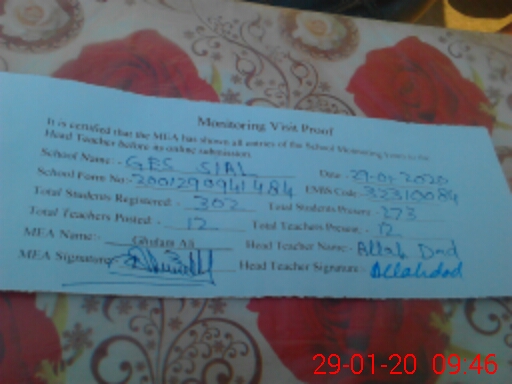 Monitoring Visit Proof
It is certified that the MEA has shown all entries of the School Monitoring Form to the
Head Teacher before its online submission.
School Name:- GES SIAL Date:- 29-01-2020
School Form No:- 2001290941484 EMIS Code: 32310084
Total Students Registered:- 302 Total Students Present: 273
Total Teachers Posted:- 12 Total Teachers Present:- 12
MEA Name:- Ghulam Ali Head Teacher Name:- Allah Dad
MEA Signature Head Teacher Signature: Allahdad
29-01-20 09:46